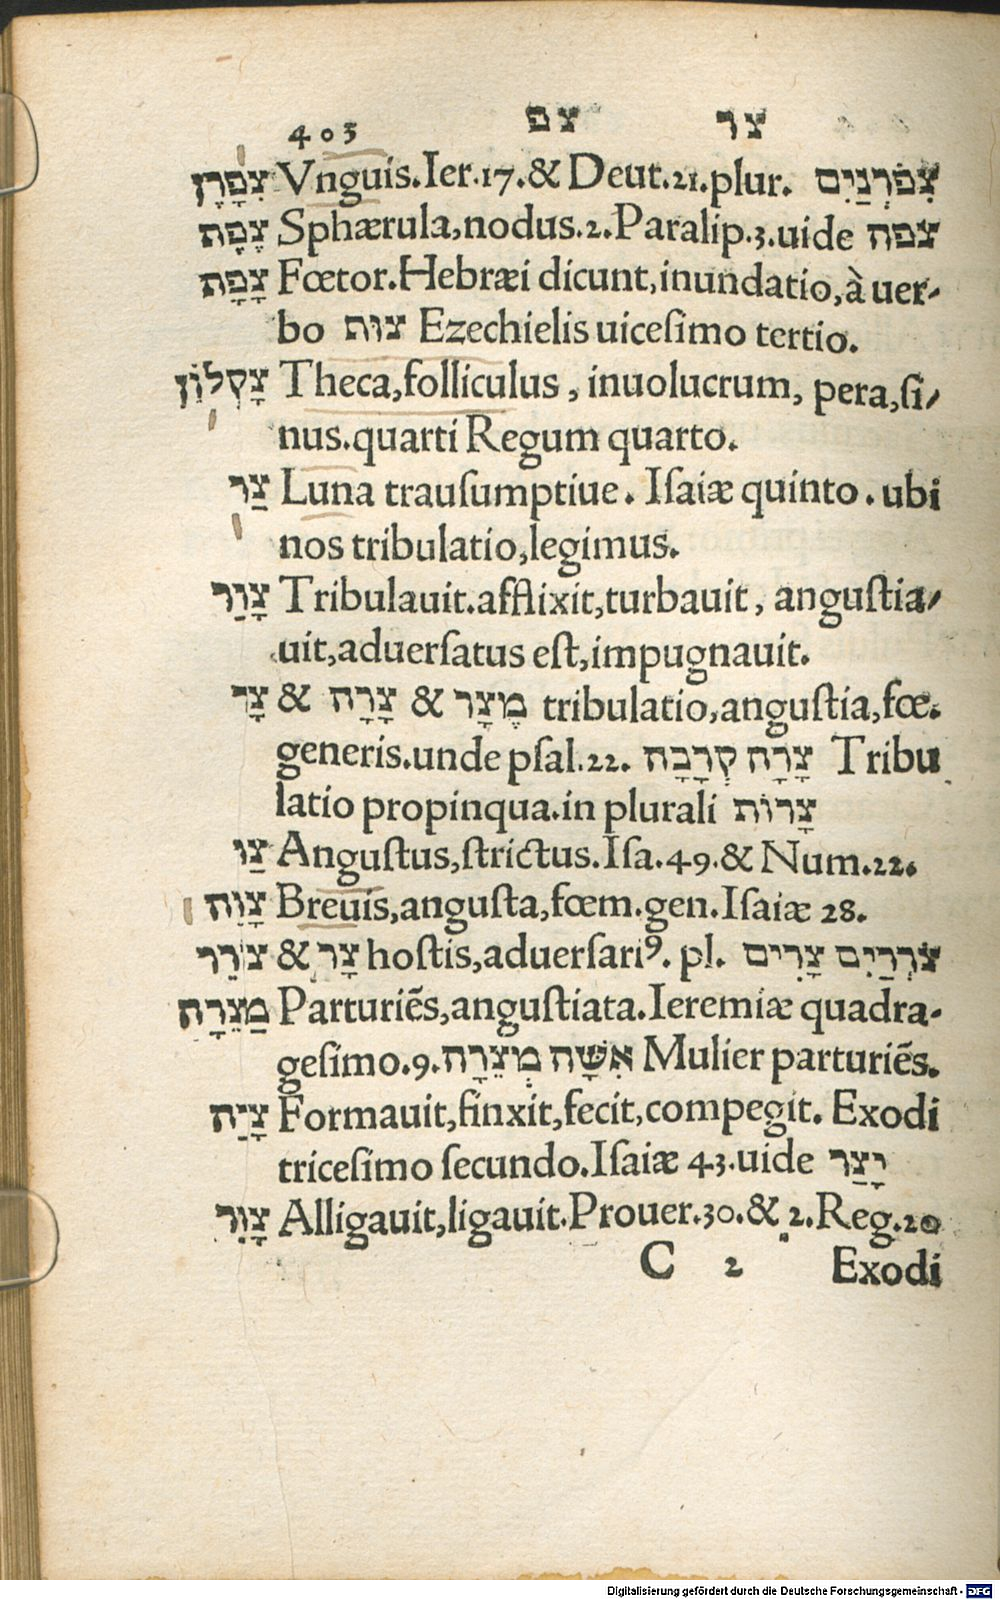 403 צפ צר
צִפָּרֶן Vnguis.Ier.17.& Deut.21.plur. צִפֹּרְנַיִם
צֶפֶת Sphærula,nodus.2.Paralip.3.uide צפה
צָפָת Fœtor.Hebræi dicunt,inundatio,à uer-
bo צוּת Ezechielis uicesimo tertio.
צָקְלוֹן Theca,folliculus, inuolucrum, pera,si-
nus.quarti Regum quarto.
צַר Luna trausumptiue. Isaiæ quinto. ubi
nos tribulatio,legimus.
צָוַר Tribulauit.afflixit,turbauit, angustia-
uit,aduersatus est,impugnauit.
צָר & צָרָה & מֶצָר tribulatio,angustia,fœ.
generis.unde psal.22. צָרָה קְרָבָה Tribu
latio propinqua.in plurali צָרוֹת
צַו Angustus,strictus.Isa.49.& Num.22.
צָוַה Breuis,angusta,fœm.gen.Isaiæ 28.
צוֹרֵר & צָר hostis,aduersariꝰ. pl. צֹרְרַיִם צָרִים
מַצֵרָה Parturiẽs,angustiata.Ieremiæ quadra-
gesimo.9. אִשָּׁה מְצֵרָה Mulier parturiẽs.
צָיַה Formauit,finxit,fecit,compegit. Exodi
tricesimo secundo.Isaiæ 43.uide יָצַר
צָוַר Alligauit,ligauit.Prouer.30.& 2.Reg.20
C 2 Exodi
Digitalisierung gefördert durch die Deutsche Forschungsgemeinschaft - DFG